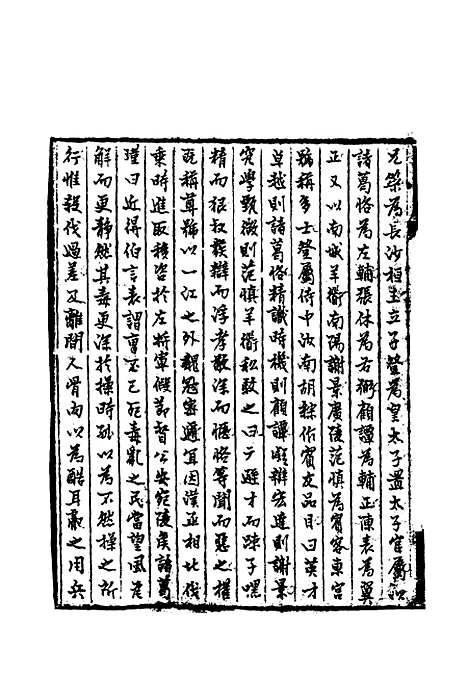 兄策為長沙桓王立子登為皇太子置太子官屬以
諸葛恪為左輔張休為右弼顧譚為輔正陳表為翼
正又以南城羊衜南陽謝景廣陵范慎為賓客東宮
號稱多士登屬侍中汝南胡綜作賓友品目曰英才
卓越則諸葛恪精識時機則顧譚凝辯宏達則謝景
究學甄微則范慎羊衜私駁之曰元遜才而疎子嘿
精而狠叔發辯而浮孝敬深而陿恪等聞而惡之權
既稱尊號以一江之外親冠密邇宜因漢並相北伐
乗時進取移資於左將軍假節督公安宛陵侯諸葛
瑾曰近得伯言表謂曹丕已死毒亂之民當望風瓦
解而更靜然其毒更深於操時孤以為不然操之所
行惟殺伐過差又離間人骨肉以為酷耳舉之用兵